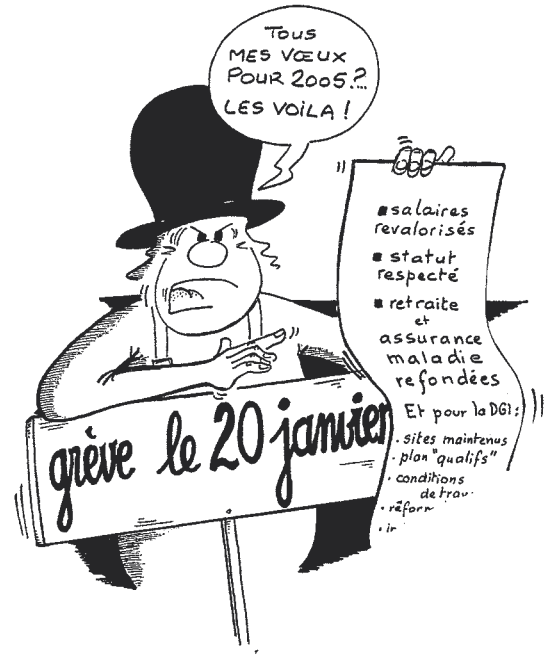 TOUS
MES VŒUX
POUR 2005 ?...
LES VOILA !
■ salaires
revalorisés
■ statut
respecté
■ retraite
et
assurance
maladie
refondées
Et pour la DGI :
. sites maintenus
. plan "qualifs"
. conditions
de trav
. réform
. ir
grève le 20 janvier